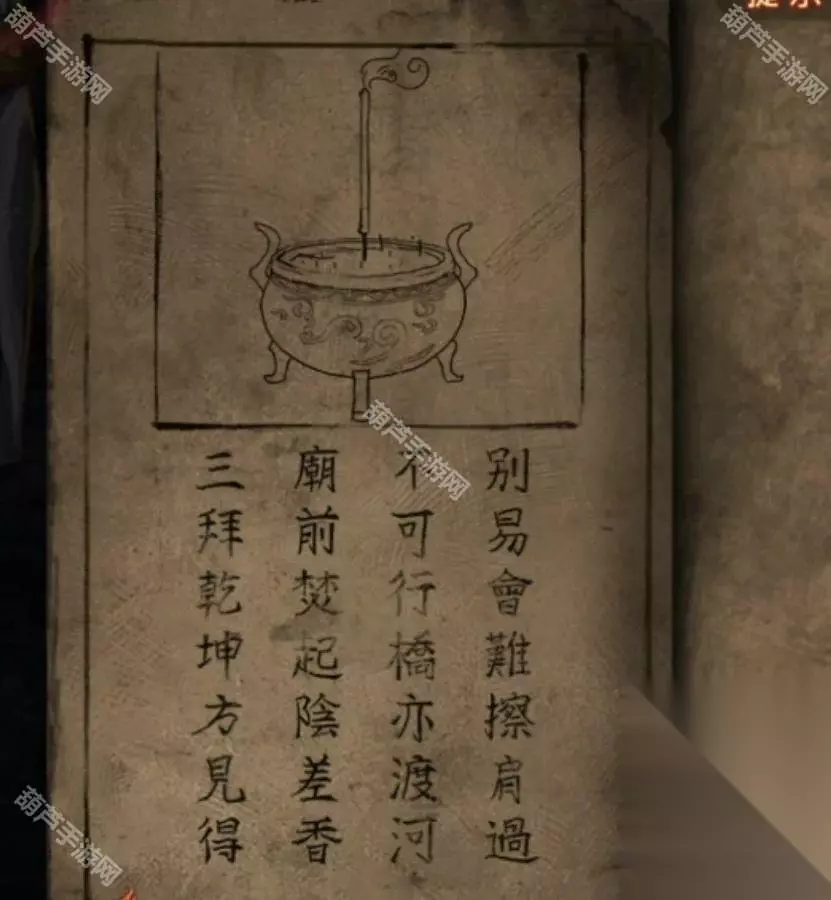 別易會難擦肩過
不可行橋亦渡河
廟前焚起陰差香
三拜乾坤方見得
葫芦手游网
葫芦手游网
葫芦手游网
葫芦手游网